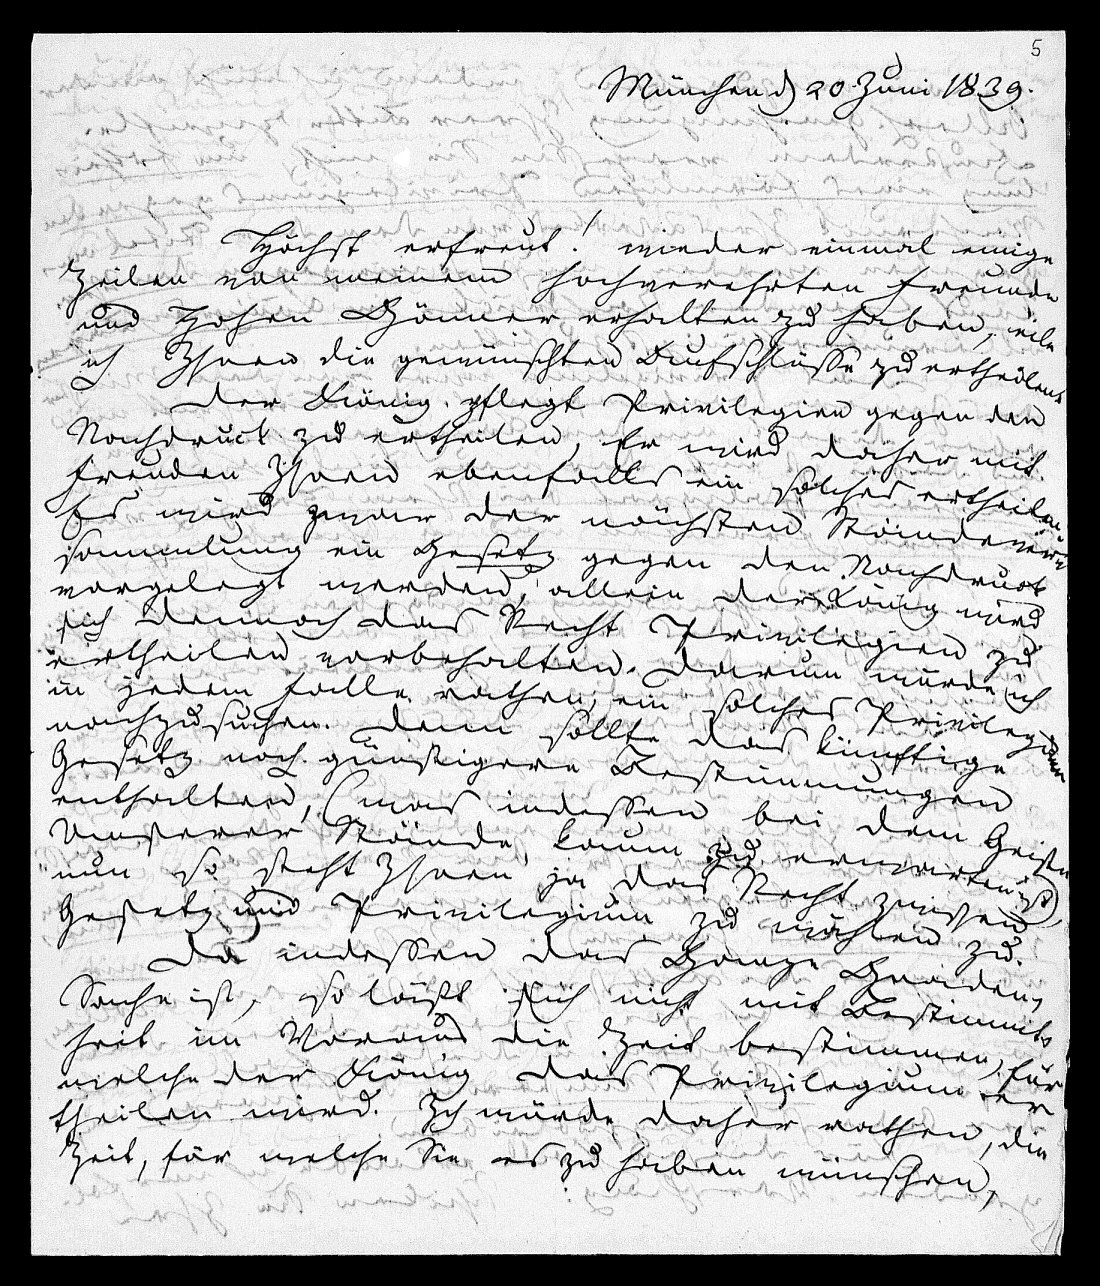 5
München d 20 Juni 1839.
Höchst erfreut! wieder einmal einige
Zeilen von meinem hochverehrten Freunde
und Hohen Gönner erhalten zu haben, eile
ich Ihnen die gewünschten Aufschlüsse zu ertheilen.
Der König pflegt Privilegien gegen den
Nachdruck zu ertheilen, Er wird daher mit
Freuden Ihnen ebenfalls ein solches ertheilen.
Es wird zwar der nächsten Ständever-
sammlung ein Gesetz gegen den Nachdruck
vorgelegt werden, allein der König wird
sich dennoch das Recht Privilegien zu
ertheilen vorbehalten. Darum würde ich
in jedem Falle rathen, ein solches Privilegium
nachzusuchen. Denn sollte das künftige
Gesetz noch günstigere Bestimmungen
enthalten, (was indessen bei dem Geiste
Unserer Stände kaum zu erwarten ist),
nun so steht Ihnen ja das Recht zwischen
Gesetz und Privilegium zu wählen zu.
Da indessen das Ganze Gnaden-
Sache ist, so läßt sich nicht mit Bestimmt-
heit im Voraus die Zeit bestimmen, für
welche der König das Privilegium er-
theilen wird. Ich würde daher rathen, die
Zeit, für welche Sie es zu haben wünschen,